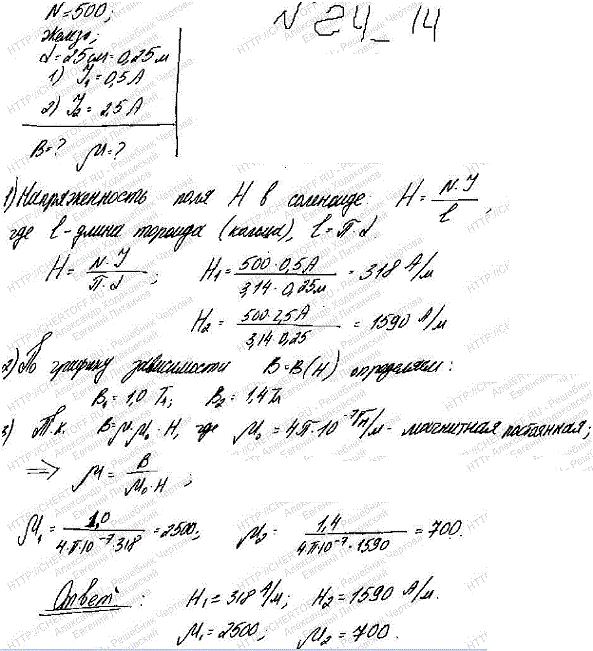 N=500;
№ 24_14
железо;
d=25см=0,25м
1) J₁=0,5 A
2) J₂= 2,5 A
B=? μ=?
1) Напряженность поля H в соленоиде: H = N·J / l ,
где l - длина тороида (кольца), l=π·d.
H = N·J / π·d ; H₁ = 500·0,5A / 3,14·0,25м = 318 A/м
H₂ = 500·2,5A / 3,14·0,25 = 1590 A/м
2) По графику зависимости B=B(H) определяем:
B₁=1,0 Тл; B₂=1,4Тл
3) Т.к. B=μ·μ₀·H, где μ₀=4π·10⁻⁷Гн/м - магнитная постоянная;
=> μ = B / μ₀·H ;
μ₁ = 1,0 / 4·π·10⁻⁷·318 = 2500; μ₂ = 1,4 / 4π·10⁻⁷·1590 = 700.
Ответ: H₁=318 A/м; H₂=1590 A/м.
μ₁=2500; μ₂=700.
HTTP://CHERTOFF.RU - Решебник Чертова
Александровский
Евгений Литвинов